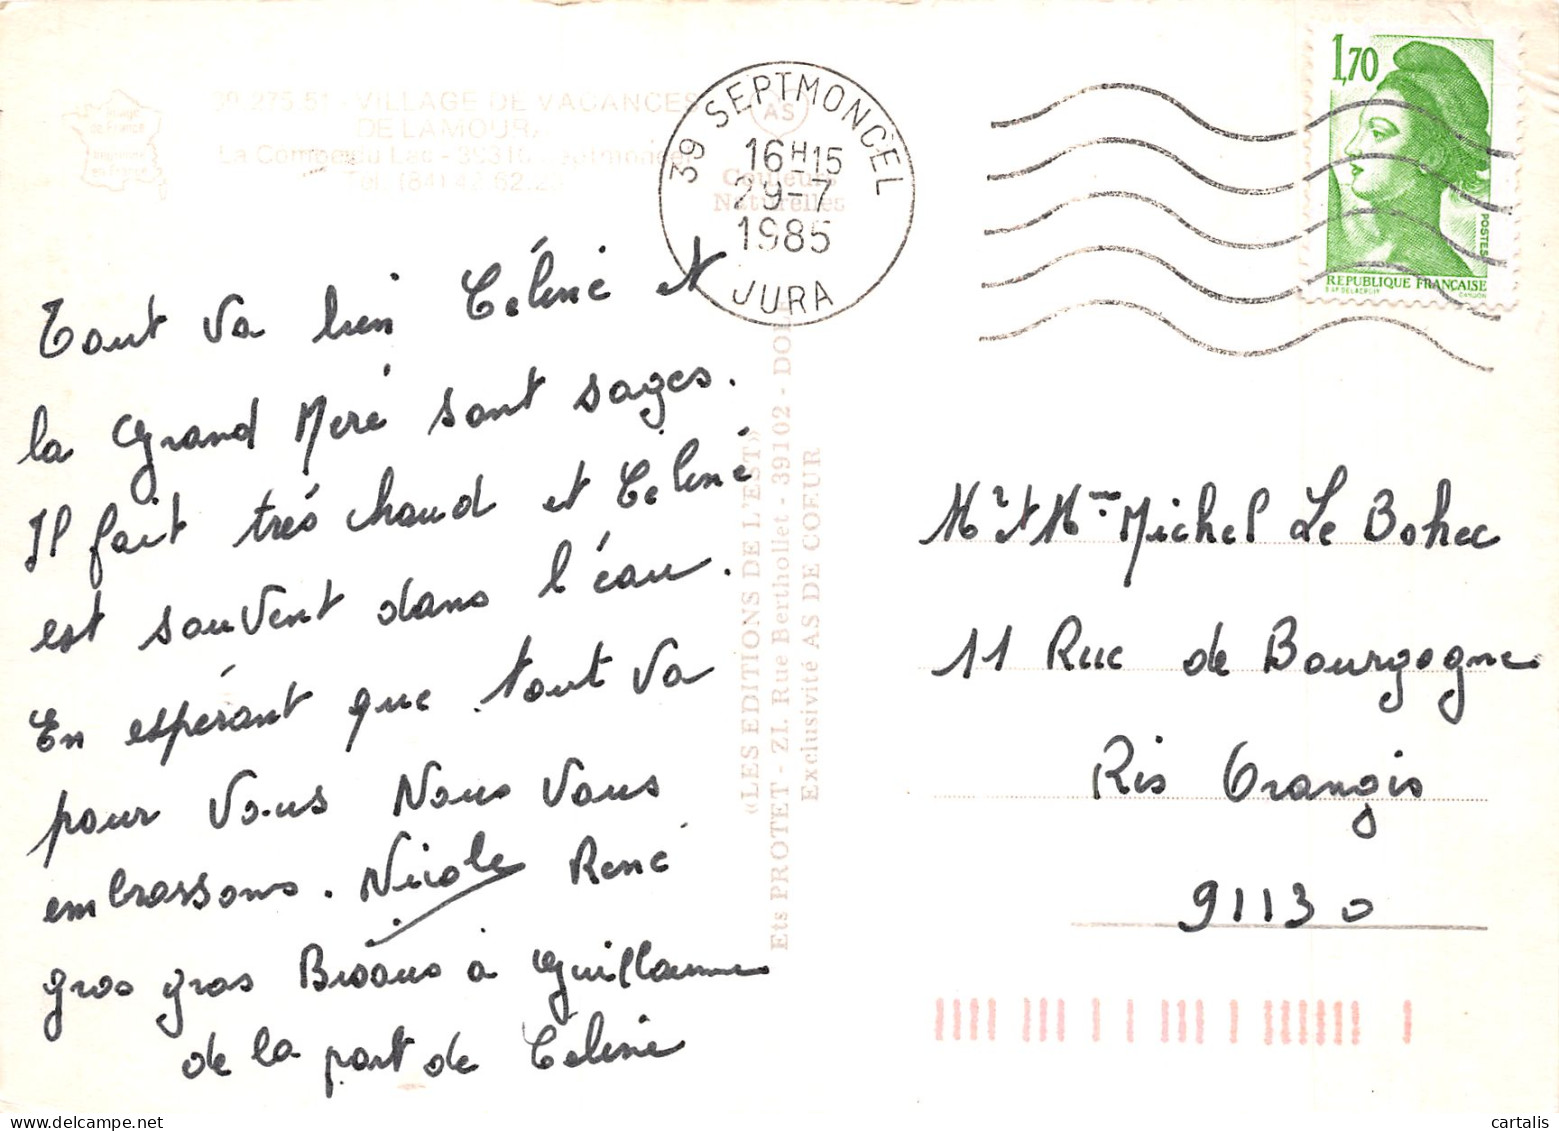 39 275 51 - VILLAGE DE VACANCES
DE LAMOURA
La Combe du Lac - 39310 Septmoncel
AS
Couleurs
Naturelles
39 SEPTMONCEL
16H15
29-7
1985
JURA
1,70
POSTES
REPUBLIQUE FRANÇAISE
Tout va bien Céliné et
la Grand Meré sont sages.
Il fait trés chaud et Céliné
est souvent dans l'éau.
En espérant que tout va
pour Vous Nous Vous
embrassons. Nicole René
gros gros Bisous à Guillaume
de la part de Céliné
«LES EDITIONS DE L'EST»
Ets PROTET - ZI. Rue Berthollet - 39102 - DOLE
Exclusivité AS DE CŒUR
Mr et Mme Michel Le Bohec
11 Rue de Bourgogne
Ris Orangis
91130
cartalis